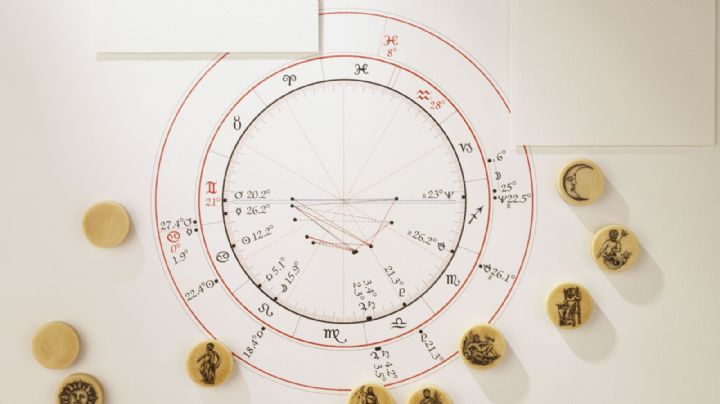 ♓
8°
♓
♒
28°
♈
♉
♑
6°
☽
25°
♊
21°
♂ 20.2°
☿ 26.2°
☉ 12.2°
R 23° ♆
♆ 22.5°
R
♐
27.4° ♂
♋
0°
1.9°
♋
R 26.2° ♅
♅ 26.1°
♏
22.4° ☉
♀ 5.1°
☽ 15.9°
♌
3.4°
2.3°
♃
♄
21.3°
♇
♎
♍
18.4°
♇ 21.3°
♃ 4.2°
♄ 3.5°